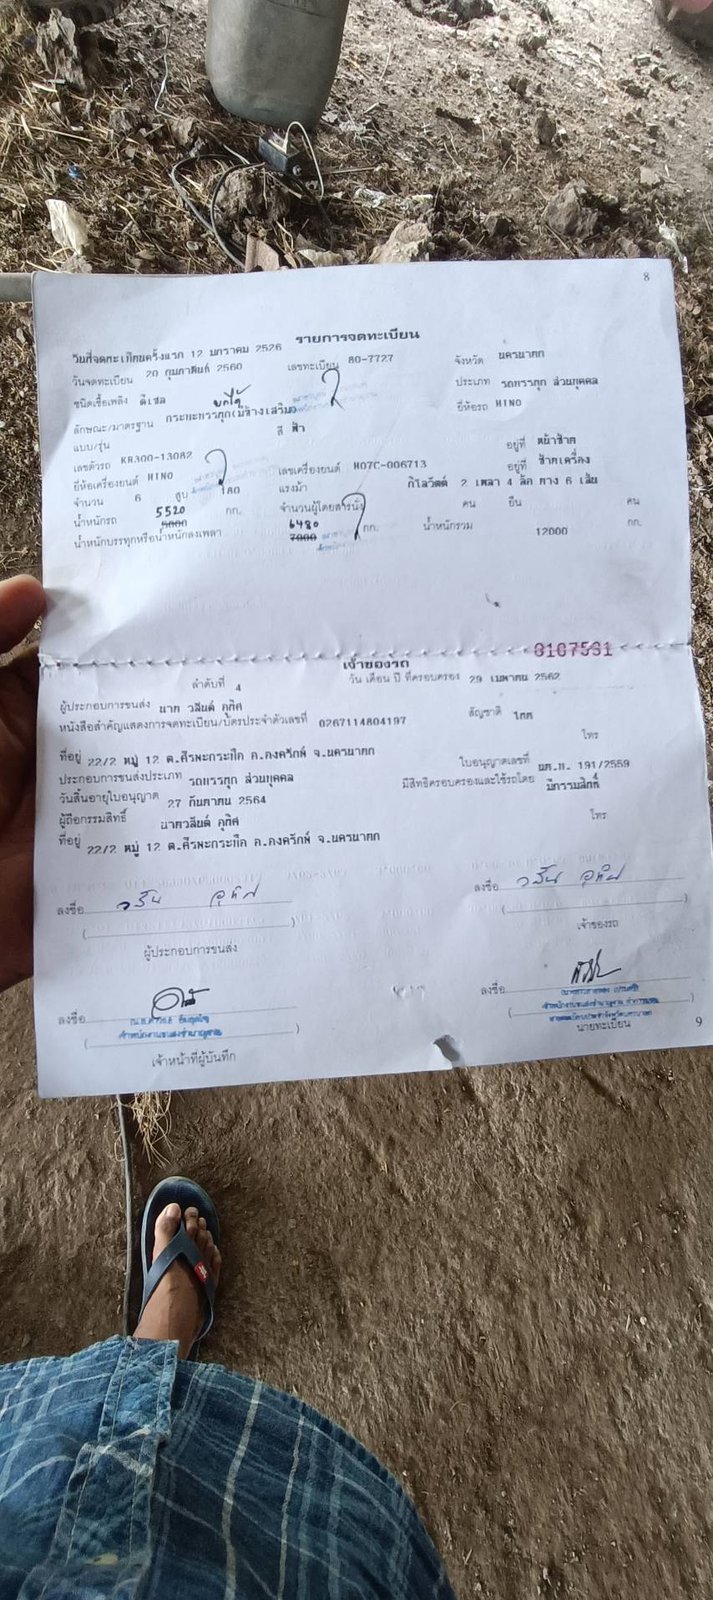 8
รายการจดทะเบียน
วันที่จดทะเบียนครั้งแรก 12 มกราคม 2526
วันจดทะเบียน 20 กุมภาพันธ์ 2560 เลขทะเบียน 80-7727 จังหวัด นครนายก
ชนิดเชื้อเพลิง ดีเซล ประเภท รถบรรทุก ส่วนบุคคล
ลักษณะ/มาตรฐาน กระบะบรรทุก(มีข้างเสริม) ยี่ห้อรถ HINO
แบบ/รุ่น สี ฟ้า
เลขตัวรถ KR300-13082 อยู่ที่ หน้าซ้าย
ยี่ห้อเครื่องยนต์ HINO เลขเครื่องยนต์ H07C-006713 อยู่ที่ ซ้ายเครื่อง
จำนวน 6 สูบ 180 แรงม้า กิโลวัตต์ 2 เพลา 4 ล้อ ยาง 6 เส้น
น้ำหนักรถ 5520 5000 กก. จำนวนผู้โดยสารนั่ง คน ยืน คน
น้ำหนักบรรทุกหรือน้ำหนักลงเพลา 6480 7000 กก. น้ำหนักรวม 12000 กก.
เจ้าของรถ
ลำดับที่ 4 วัน เดือน ปี ที่ครอบครอง 29 เมษายน 2562
ผู้ประกอบการขนส่ง นาย วสันต์ อุทิศ สัญชาติ ไทย
หนังสือสำคัญแสดงการจดทะเบียน/บัตรประจำตัวเลขที่ 0267114804197
โทร
ที่อยู่ 22/2 หมู่ 12 ต.ศีรษะกระบือ อ.องครักษ์ จ.นครนายก
ประกอบการขนส่งประเภท รถบรรทุก ส่วนบุคคล ใบอนุญาตเลขที่ นย.บ. 191/2559
วันสิ้นอายุใบอนุญาต 27 กันยายน 2564 มีสิทธิครอบครองและใช้รถโดย มีกรรมสิทธิ์
ผู้ถือกรรมสิทธิ์ นายวสันต์ อุทิศ โทร
ที่อยู่ 22/2 หมู่ 12 ต.ศีรษะกระบือ อ.องครักษ์ จ.นครนายก
ลงชื่อ วสันต์ อุทิศ ลงชื่อ วสันต์ อุทิศ
ผู้ประกอบการขนส่ง เจ้าของรถ
ลงชื่อ ลงชื่อ
เจ้าหน้าที่ผู้บันทึก นายทะเบียน
9